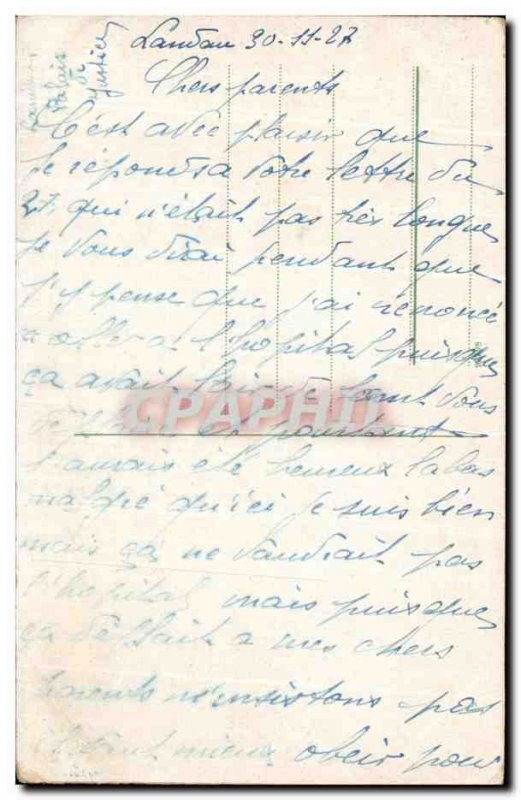 Palais
de
Justice
Landau 30-11-27
Chers parents
C'est avec plaisir que
je répond sa votre lettre du
27, qui n'était pas très longue,
je vous dirai pendant que
j'y pense que j'ai rénoncé
a aller a l'hopital puisque
ça avait l'air de tant vous
et pourtant
j'aurais été heureux labas
malgré qu'ici je suis bien
mais ça ne vaudrait pas
l'hopital mais puisque
ça déplait a mes chers
parents n'insistons pas
mieux obeir pour
CPAPHIL